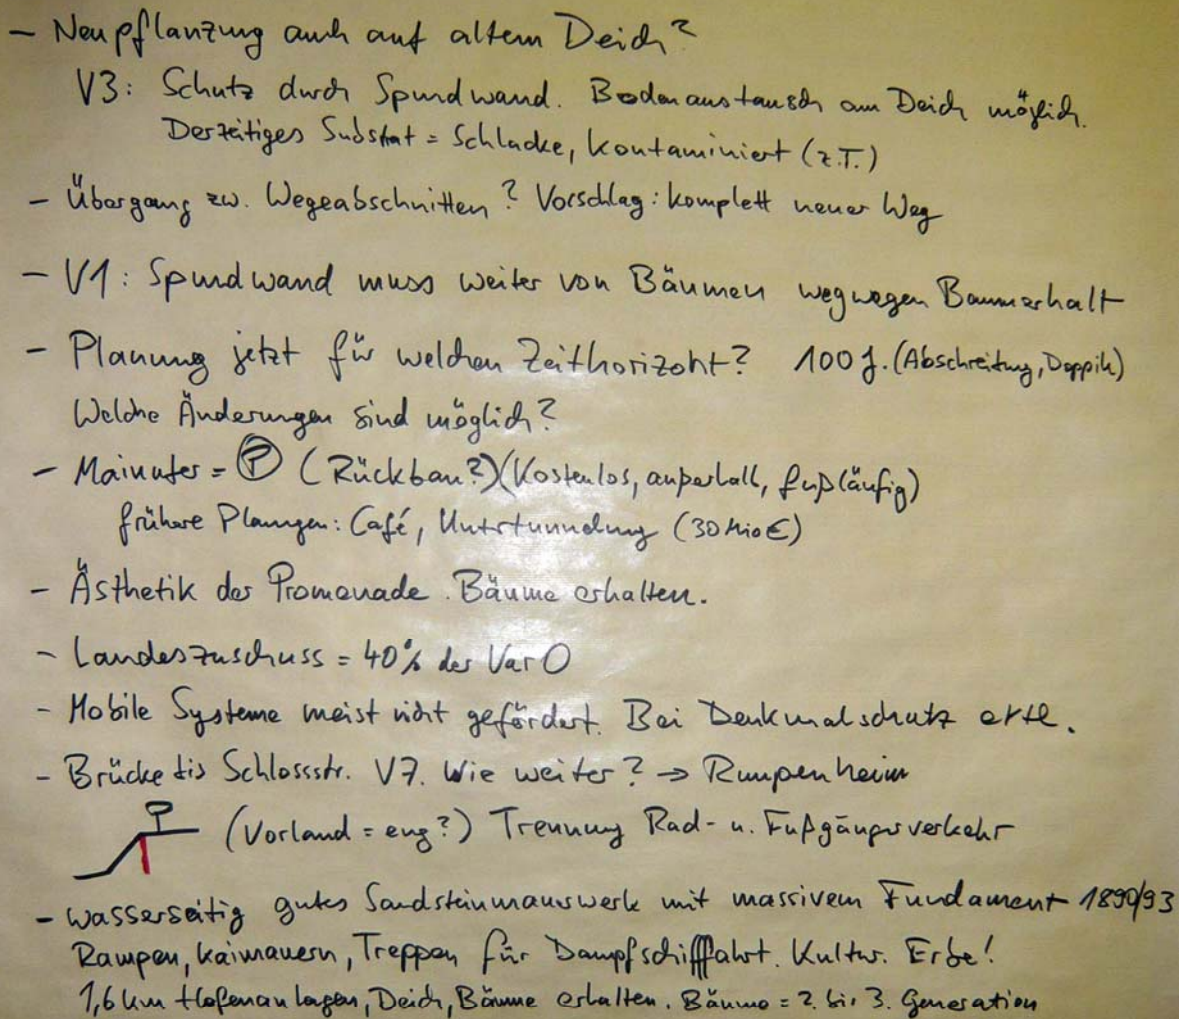 - Neupflanzung auch auf altem Deich?
V3: Schutz durch Spundwand. Bodenaustausch am Deich möglich.
Derzeitiges Substrat = Schlacke, kontaminiert (z.T.)
- Übergang zw. Wegeabschnitten? Vorschlag: komplett neuer Weg
- V1: Spundwand muss weiter von Bäumen weg wegen Baumerhalt
- Planung jetzt für welchen Zeithorizont? 100 J. (Abschreibung, Doppik)
Welche Änderungen sind möglich?
- Mainufer = P (Rückbau?) (Kostenlos, außerhalb, fußläufig)
frühere Planungen: Café, Untertunnelung (30 Mio €)
- Ästhetik der Promenade. Bäume erhalten.
- Landeszuschuss = 40% der Var 0
- Mobile Systeme meist nicht gefördert. Bei Denkmalschutz evtl.
- Brücke bis Schlossstr. V7. Wie weiter? → Rumpenheim
(Vorland = eng?) Trennung Rad- u. Fußgängerverkehr
- wasserseitig gutes Sandsteinmauerwerk mit massivem Fundament 1890/93
Rampen, Kaimauern, Treppen für Dampfschifffahrt. Kultur. Erbe!
1,6 km Hafenanlagen, Deich, Bäume erhalten. Bäume = 2. bis 3. Generation